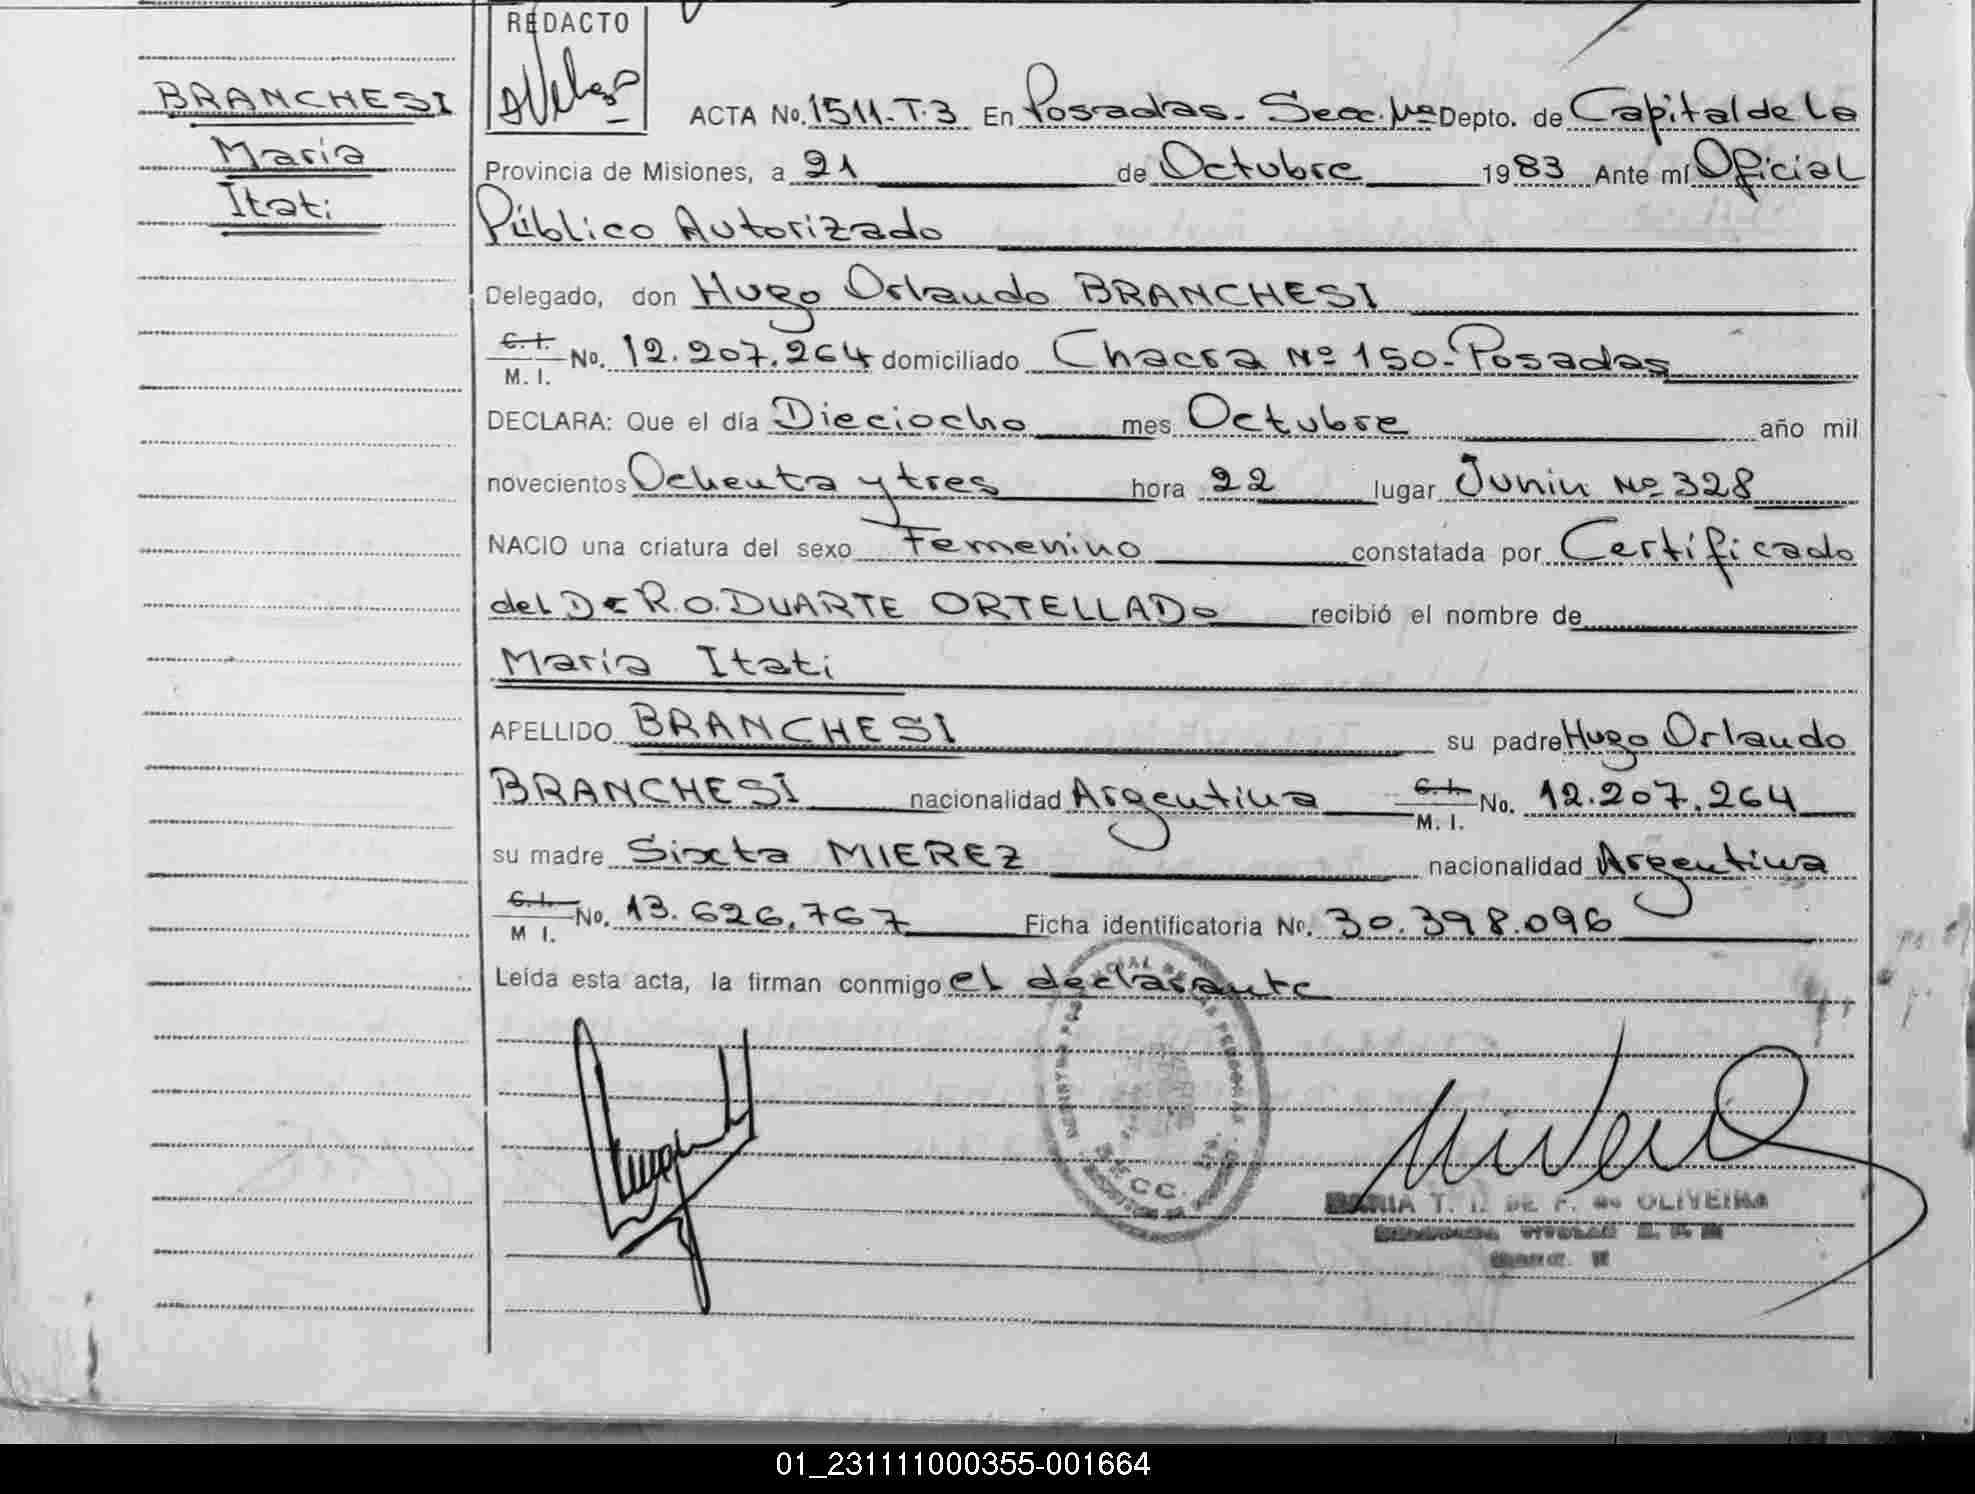 REDACTO
BRANCHESI
María
Itati
ACTA No. 1511-T.3 En Posadas- Secc. Depto. de Capital de la
Provincia de Misiones, a 21 de Octubre 1983 Ante mí Oficial
Público Autorizado
Delegado, don Hugo Orlando BRANCHESI
C. I.
M. I. No. 12.207.264 domiciliado Chacra Nº 150-Posadas
DECLARA: Que el día Dieciocho mes Octubre año mil
novecientos Ochenta y tres hora 22 lugar Junin Nº 328
NACIO una criatura del sexo Femenino constatada por Certificado
del Dr R.O. DUARTE ORTELLADO recibió el nombre de
María Itati
APELLIDO BRANCHESI su padre Hugo Orlando
BRANCHESI nacionalidad Argentina C. I.
M. I. No. 12.207.264
su madre Sixta MIEREZ nacionalidad Argentina
C. I.
M I. No. 13.626.767 Ficha identificatoria No. 30.398.096
Leída esta acta, la firman conmigo el declarante
MARIA T. DE F. de OLIVEIRA
01_231111000355-001664